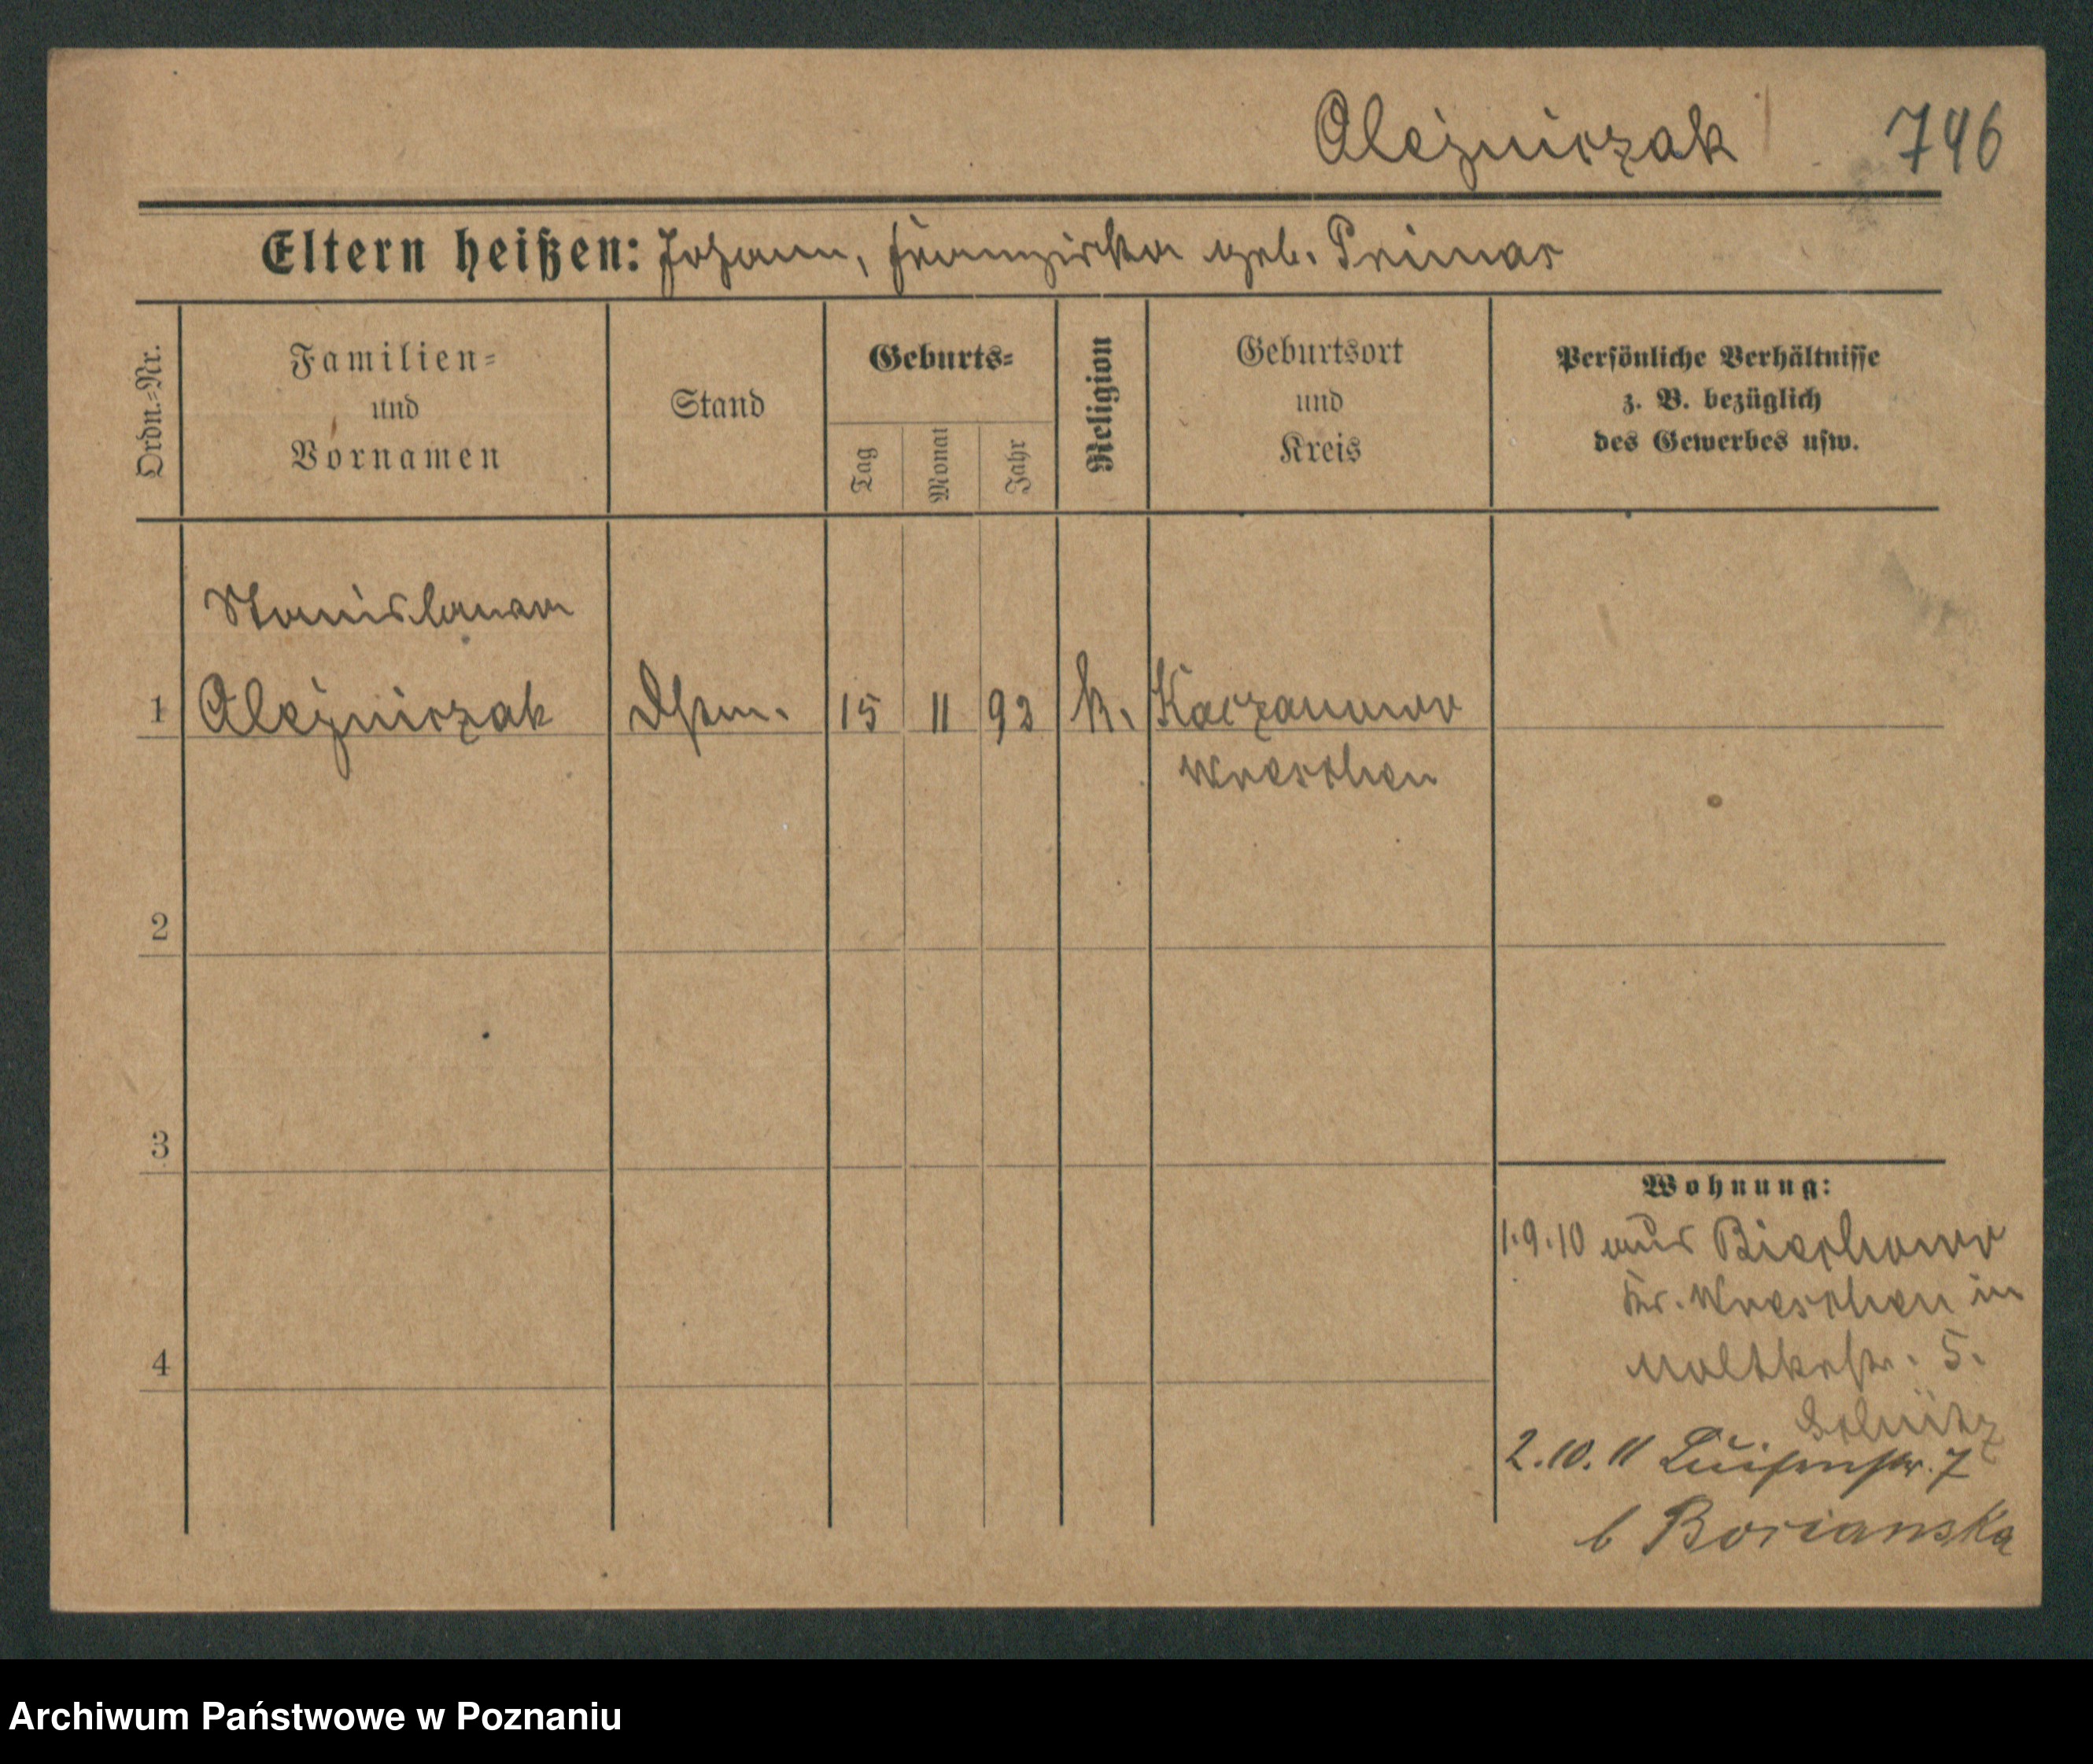 Olejniczak 746
Eltern heißen: Johann, Franziska geb. Primas
Ordn.=Nr.
Familien=
und
Vornamen
Stand
Geburts=
Tag
Monat
Jahr
Religion
Geburtsort
und
Kreis
Persönliche Verhältnisse
z. B. bezüglich
des Gewerbes usw.
Stanislawa
1 Olejniczak Dstm. 15 11 92 k. Kaczanowo
Wreschen
2
3
4
Wohnung:
1.9.10 aus Biechowo
Kr. Wreschen in
Moltkestr. 5.
2.10.11 Luisenstr. 7
b Borianska
Archiwum Państwowe w Poznaniu